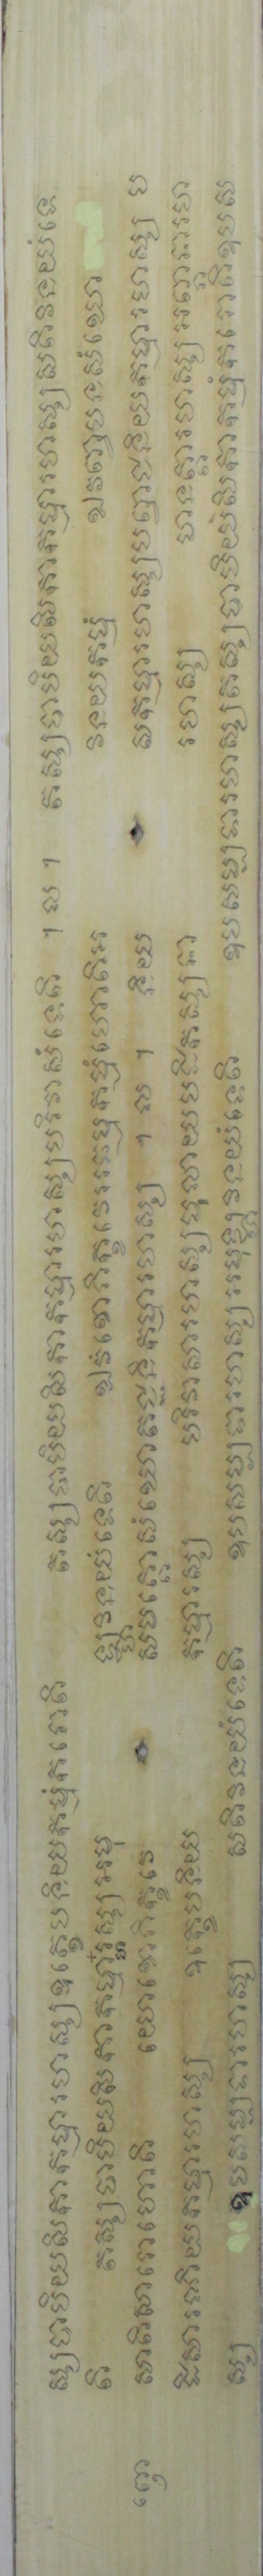 ស្សបាបិយសិកាកម្មារហស្សឧក្ខេបនិយកម្មំករោតិ តស្សបាបិយសិកាកម្មារហស្សបរិវាសំទេតិ ។ ល ។ តស្សបាបិយសិកាកម្មារហស្សសតិវនយំទេ
តិ តស្សបាបិយសិកាកម្មារហស្សអមុ ឡ្ហវនយំទេតិ ឯវំខោភិក្ខវេអធម្មកម្មំហោតិអ វនយកម្មំ ឯវញ្ចបនសំឃោ
ញោ
សាតិសារោហោតិ យោខោភិក្ខវេ សមគ្គោសំឃោតជ្ជនិកម្មារហស្ស ។ ល ។ និយ សកម្មារហស្សបព្វាជនិយកម្មារហស្ស ប
ដិសារណិយកម្មារហស្ស ឧក្ខេបនិយ កម្មារស្ស បរិវាសារហស្សមុលាយបដិកស្សនា រហស្ស មានត្តារហស្សអព្ភានារហ
ស្ស ឧបសម្បទារហស្ស សតិវនយំទេតិ ឧបសម្បទារហស្សអមុឡ្ហវនយំទេតិ ឧបសម្បទារហស្សតស្សបាបិយសិកាកម្មំករោតិឧបស